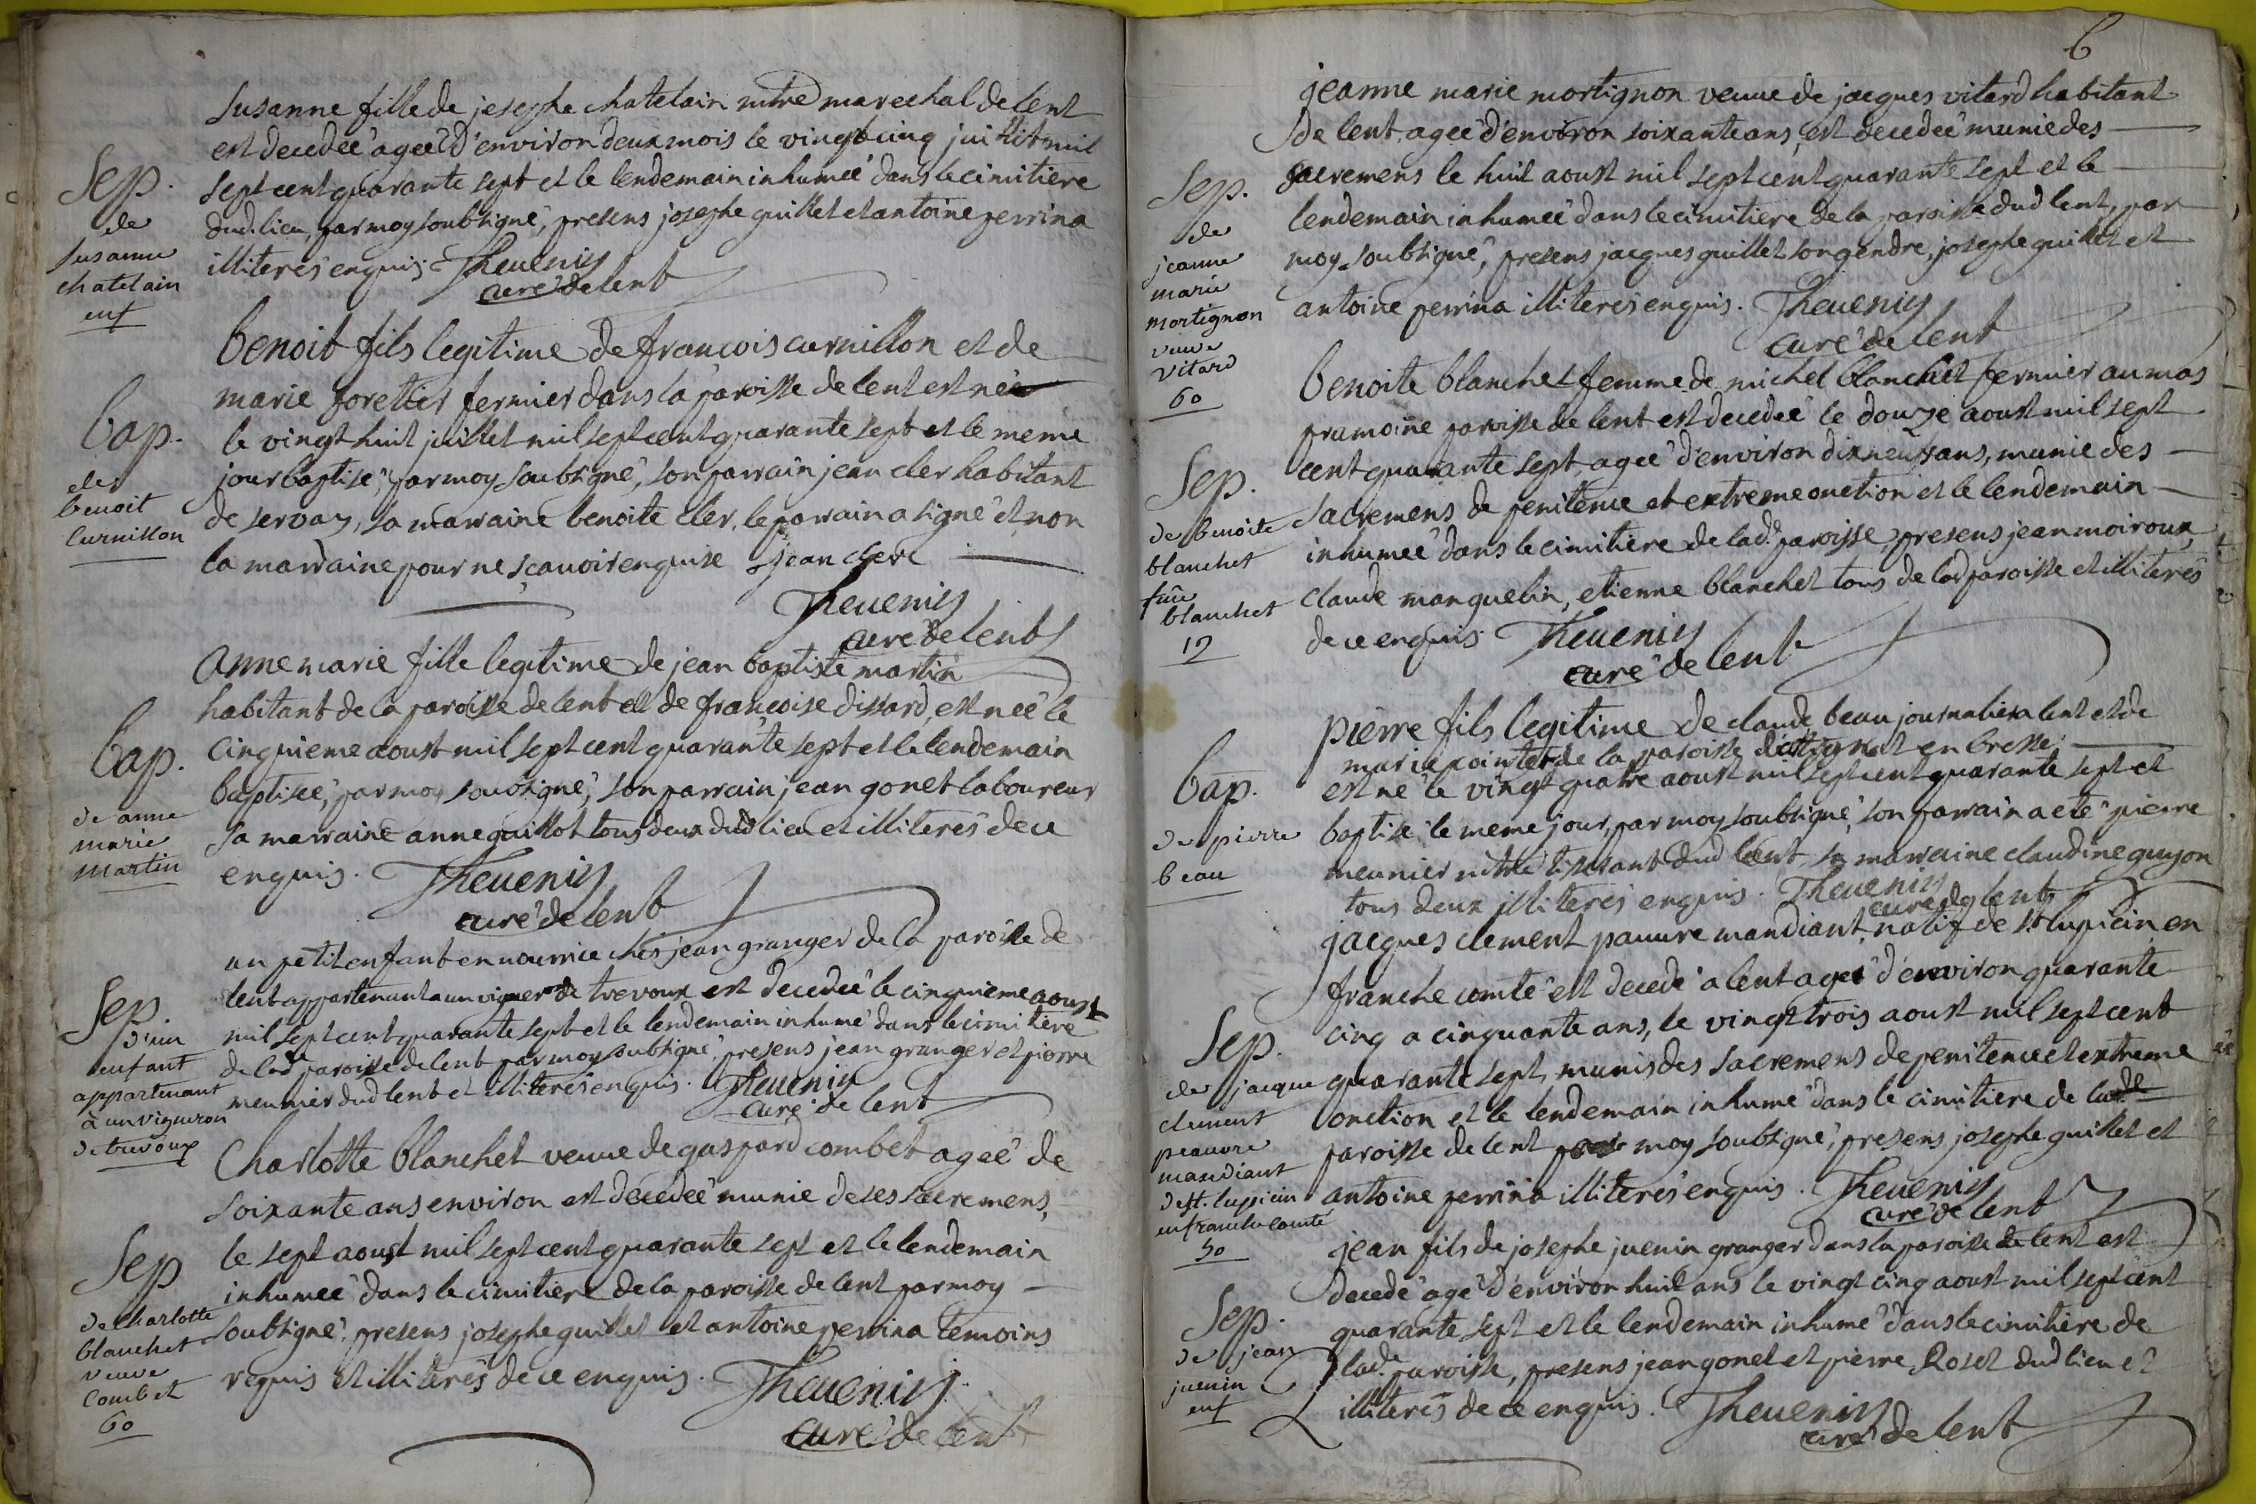 Sep.
de
susanne
chatelain
enf
susanne fille de josephe chatelain mtre marechal de lent
est decedeé ageé d'environ deux mois le vingt cinq juillet mil
sept cent quarante sept et le lendemain inhumeé dans le cimitiere
dud. lieu, par moy soubsigné, presens josephe guillet et antoine perrina
illiterés enquis. Thevenin
curé de lent
Bap.
de
benoit
Curnillon
benoit fils legitime de francois curnillon et de
marie foretier fermier dans la paroisse de lent est né
le vingt huit juillet mil sept cent quarante sept et le meme
jour baptisé, par moy soubsigné, son parrain jean cler habitant
de servas, sa marraine benoite cler, le parrain a signé et non
la marraine pour ne sçavoir enquise Jean clerc
Thevenin
curé de lent
Bap.
de anne
marie
martin
anne marie fille legitime de jean baptiste martin
habitant de la paroisse de lent et de françoise dissard, est neé le
cinquieme aoust mil sept cent quarante sept et le lendemain
baptiseé, par moy soubsigné, son parrain jean gonet laboureur
sa marraine anne guillot tous deux dud lieu et illiterés de ce
enquis. Thevenin
curé de lent
Sep.
d'un
enfant
appartenant
à un vigneron
de trevoux
un petit enfant en nourrice chés jean granger de la paroisse de
lent appartenant a un vigneron de trevoux est decedeé le cinquieme aoust
mil sept cent quarante sept et le lendemain inhumé dans le cimitiere
de lad paroisse de lent par moy soubsigné, presens jean granger et pierre
meunier dud lent et illiterés enquis. Thevenin
curé de lent
Sep
de Charlotte
blanchet
veuve
Combet
60
Charlotte blanchet veuve de gaspard combet ageé de
soixante ans environ est decedeé munie de ses sacremens,
le sept aoust mil sept cent quarante sept et le lendemain
inhumeé dans le cimitiere de la paroisse de lent par moy
soubsigné, presens josephe guillet et antoine perrina temoins
requis et illiterés de ce enquis. Thevenin
curé de lent
6
Sep.
de
jeanne
marie
mortignon
veuve
vitard
60
jeanne marie mortignon veuve de jacques vitard habitant
de lent, ageé d'environ soixante ans, est decedeé munie des
sacremens le huit aoust mil sept cent quarante sept et le
lendemain inhumeé dans le cimitiere de la paroisse dud lent, par
moy soubsigné, presens jacques guillet son gendre, josephe guillet et
antoine perrina illiterés enquis. Thevenin
curé de lent
Sep.
de benoite
blanchet
blanchet
19
benoite blanchet femme de michel blanchet fermier au mas
pramoine paroisse de lent est decedeé le douze aoust mil sept
cent quarante sept ageé d'environ dix neuf ans, munie des
sacremens de penitence et extreme onction et le lendemain
inhumeé dans le cimitiere de lad. paroisse, presens jean moiroux,
claude manguelin, etienne blanchet tous de lad paroisse et illiterés
de ce enquis. Thevenin
curé de lent
Bap.
de pierre
beau
pierre fils legitime de claude beau journalier a lent et de
marie pointet de la paroisse en bresse
est né le vingt quatre aoust mil sept cent quarante sept et
baptisé le meme jour, par moy soubsigné, son parrain a eté pierre
meunier mtre tisserant dud lent sa marraine claudine guyon
tous deux illiterés enquis. Thevenin
curé de lent
Sep.
de jacque
clement
peauvre
mandiant
de st. lupicin
en franche comté
50
jacques clement pauvre mandiant natif de st lupicin en
franche comté est decedé a lent agé d'environ quarante
cinq a cinquante ans, le vingt trois aoust mil sept cent
quarante sept, munis des sacremens de penitence et extreme
onction et le lendemain inhumé dans le cimitiere de lade
paroisse de lent par moy soubsigné, presens josephe guillet et
antoine perrina illiterés enquis. Thevenin
curé de lent
Sep.
de jean
juenin
enf
jean fils de josephe juenin granger dans la paroisse de lent est
decedé agé d'environ huit ans le vingt cinq aoust mil sept cent
quarante sept et le lendemain inhumé dans le cimitiere de
lade. paroisse, presens jean gonet et pierre Roset dud lieu et
illiterés de ce enquis. Thevenin
curé de lent